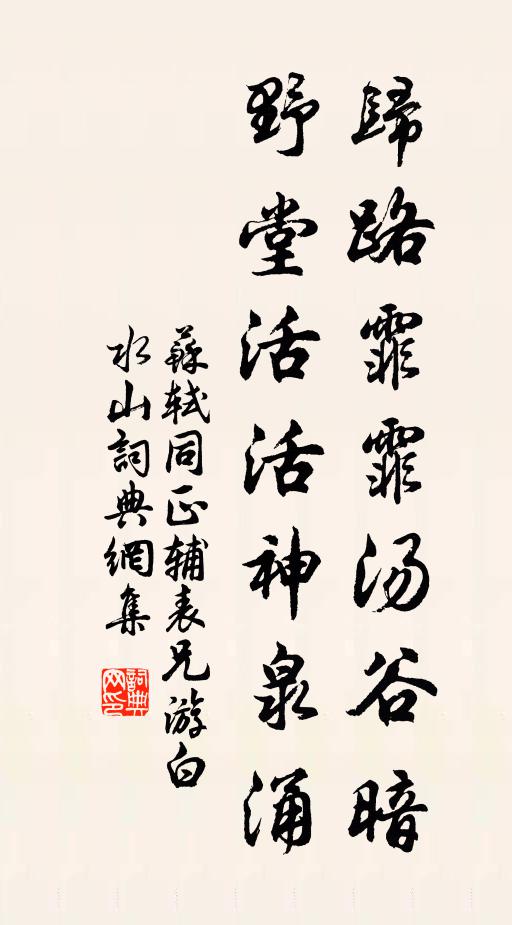 歸路霏霏湯谷暗
野堂活活神泉涌
蘇軾同正輔表兄游白
水山詞典網集
詞典網印